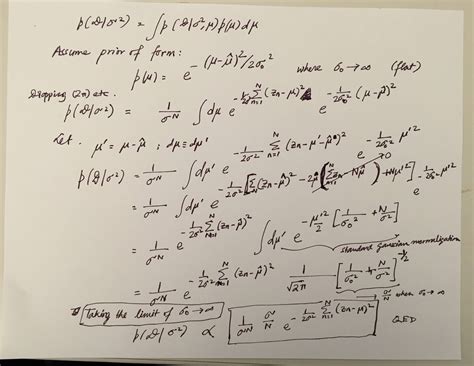 p(D|σ²) = ∫p(D|σ²,μ)p(μ)dμ
Assume prior of form:
p(μ) = e^{-(μ-μ̂)²/2σ₀²} where σ₀→∞ (flat)
Dropping (2π) etc.
p(D|σ²) = 1/σ^N ∫dμ e^{-1/2σ² Σ_{n=1}^N (zn-μ)²} e^{-1/2σ₀² (μ-μ̂)²}
Let. μ' = μ-μ̂ ; dμ = dμ'
p(D|σ²) = 1/σ^N ∫dμ' e^{-1/2σ² Σ_{n=1}^N (zn-μ'-μ̂)²} e^{-1/2σ₀² μ'²}
= 1/σ^N ∫dμ' e^{-1/2σ² [Σ_{n=1}^N (zn-μ̂)² - 2μ̂(Σzn-Nμ̂) + Nμ'²] - 1/2σ₀² μ'²} →0
= 1/σ^N e^{-1/2σ² Σ_{n=1}^N (zn-μ̂)²} ∫dμ' e^{-μ'²/2 [1/σ₀² + N/σ²]}
standard gaussian normalization
= 1/σ^N e^{-1/2σ² Σ_{n=1}^N (zn-μ̂)²} 1/√2π [1/σ₀² + N/σ²]^{-1/2}
→ σ/N when σ₀→∞
Taking the limit of σ₀→∞
p(D|σ²) ∝ 1/σ^N σ/N e^{-1/2σ² Σ_{n=1}^N (zn-μ̂)²} QED